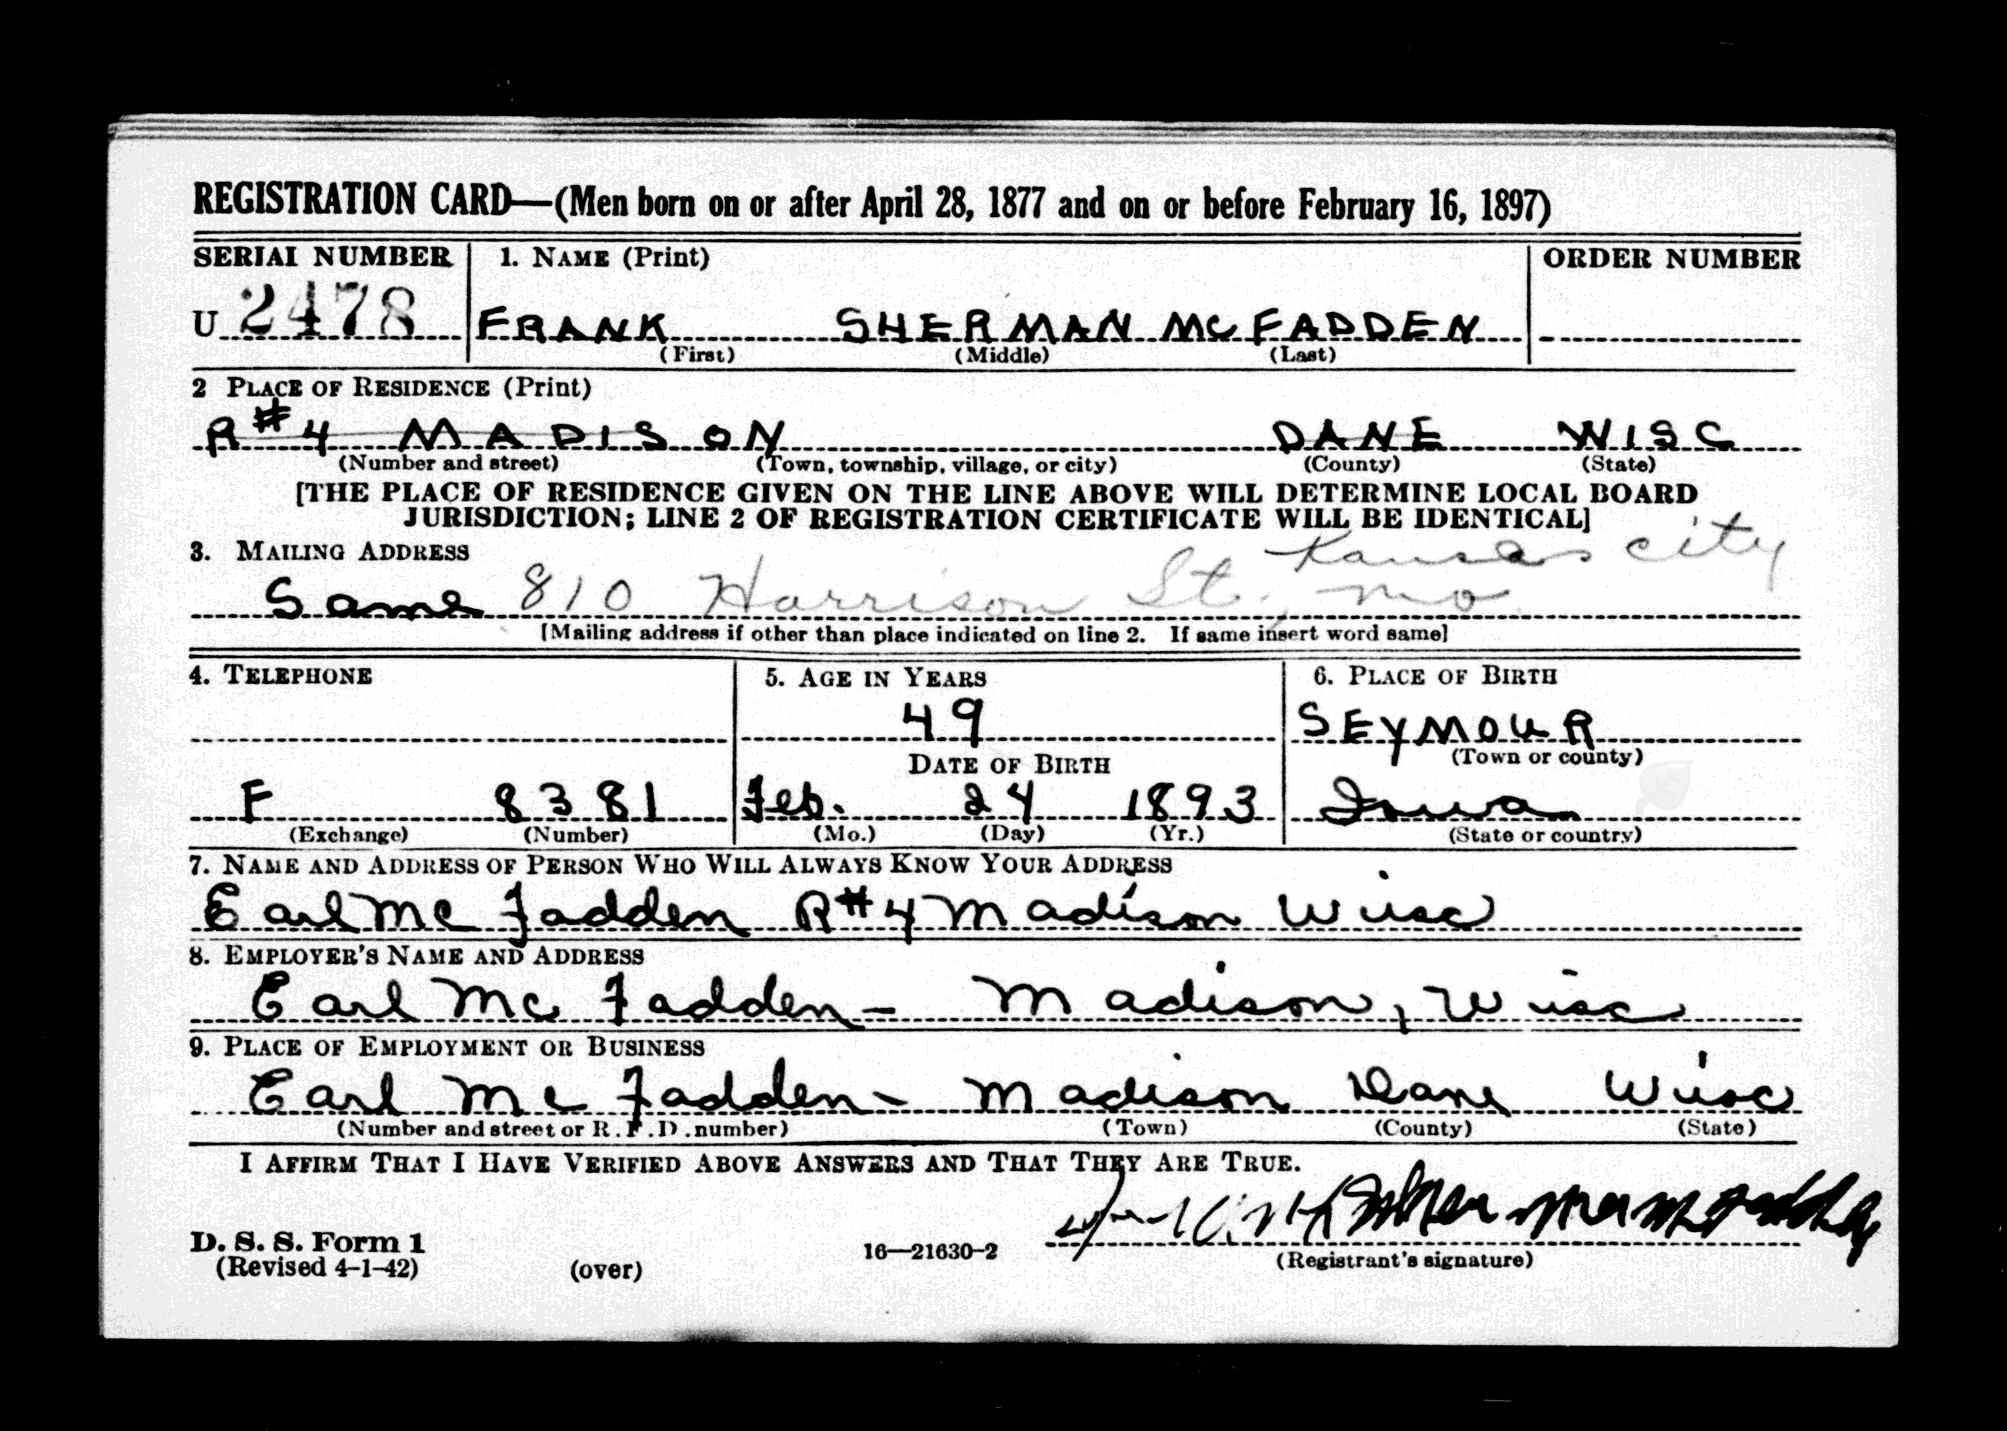 REGISTRATION CARD—(Men born on or after April 28, 1877 and on or before February 16, 1897)
SERIAL NUMBER 1. NAME (Print) ORDER NUMBER
U 2478 FRANK SHERMAN MCFADDEN
(First) (Middle) (Last)
2 PLACE OF RESIDENCE (Print)
R#4 MADISON DANE WISC
(Number and street) (Town, township, village, or city) (County) (State)
[THE PLACE OF RESIDENCE GIVEN ON THE LINE ABOVE WILL DETERMINE LOCAL BOARD
JURISDICTION; LINE 2 OF REGISTRATION CERTIFICATE WILL BE IDENTICAL]
3. MAILING ADDRESS Kansas city
Same 810 Harrison St., Mo
[Mailing address if other than place indicated on line 2. If same insert word same]
4. TELEPHONE 5. AGE IN YEARS 6. PLACE OF BIRTH
49 SEYMOUR
DATE OF BIRTH (Town or county)
F 8381 Feb. 24 1893 Iowa
(Exchange) (Number) (Mo.) (Day) (Yr.) (State or country)
7. NAME AND ADDRESS OF PERSON WHO WILL ALWAYS KNOW YOUR ADDRESS
Earl Mc Fadden R#4 Madison Wisc
8. EMPLOYER'S NAME AND ADDRESS
Earl Mc Fadden - Madison, Wisc
9. PLACE OF EMPLOYMENT OR BUSINESS
Earl Mc Fadden - Madison Dane Wisc
(Number and street or R.F.D. number) (Town) (County) (State)
I AFFIRM THAT I HAVE VERIFIED ABOVE ANSWERS AND THAT THEY ARE TRUE.
D. S. S. Form 1
(Revised 4-1-42) (over) 16—21630-2 (Registrant's signature)